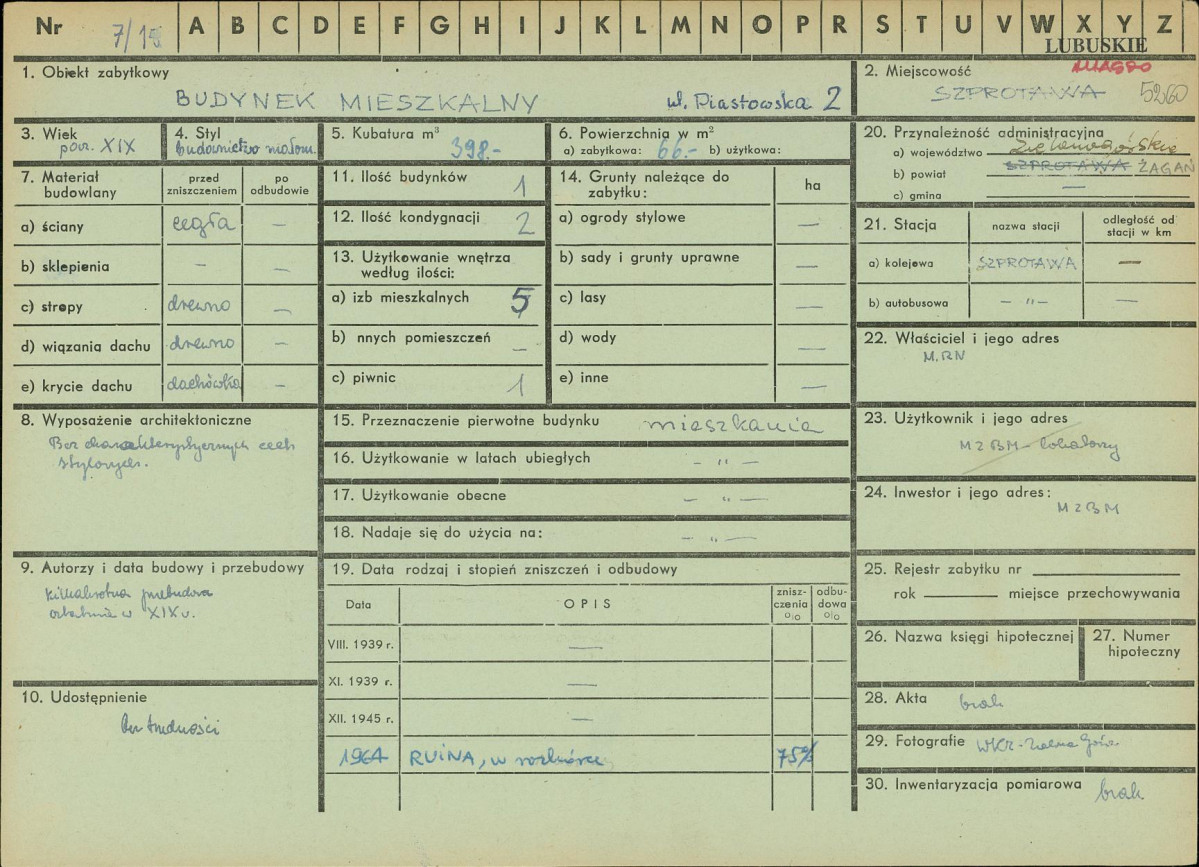 Nr 7/15 A B C D E F G H I J K L M N O P R S T U V W X Y Z
LUBUSKIE
1. Obiekt zabytkowy
BUDYNEK MIESZKALNY ul. Piastowska 2
2. Miejscowość
SZPROTAWA 5260
3. Wiek
pocz. XIX
4. Styl
budownictwo małom.
5. Kubatura m³
398.-
6. Powierzchnia w m²
a) zabytkowa: 66.- b) użytkowa:
20. Przynależność administracyjna
a) województwo Zielonogórskie
b) powiat SZPROTAWA ŻAGAŃ
c) gmina —
7. Materiał budowlany
przed zniszczeniem
po odbudowie
a) ściany cegła —
b) sklepienia - —
c) stropy drewno —
d) wiązania dachu drewno —
e) krycie dachu dachówka —
11. Ilość budynków 1
12. Ilość kondygnacji 2
13. Użytkowanie wnętrza
według ilości:
a) izb mieszkalnych 5
b) nnych pomieszczeń —
c) piwnic 1
14. Grunty należące do
zabytku:
ha
a) ogrody stylowe —
b) sady i grunty uprawne —
c) lasy —
d) wody —
e) inne —
21. Stacja
nazwa stacji
odległość od
stacji w km
a) kolejowa SZPROTAWA —
b) autobusowa - „ - —
22. Właściciel i jego adres
M.RN
8. Wyposażenie architektoniczne
Bez charakterystycznych cech
stylowych.
15. Przeznaczenie pierwotne budynku mieszkania
16. Użytkowanie w latach ubiegłych - „ —
17. Użytkowanie obecne - „ —
18. Nadaje się do użycia na: - „ —
23. Użytkownik i jego adres
MZBM - lokatorzy
24. Inwestor i jego adres:
MZBM
9. Autorzy i data budowy i przebudowy
Kilkakrotna przebudowa
ostatnia w XIX w.
19. Data rodzaj i stopień zniszczeń i odbudowy
Data
OPIS
znisz-
czenia
o/o
odbu-
dowa
o/o
VIII. 1939 r. —
XI. 1939 r. —
XII. 1945 r. —
1964 RUINA, w rozbiórce 75%
25. Rejestr zabytku nr
rok miejsce przechowywania
26. Nazwa księgi hipotecznej
27. Numer
hipoteczny
10. Udostępnienie
Bez trudności
28. Akta brak
29. Fotografie WKZ - Zielona Góra
30. Inwentaryzacja pomiarowa brak